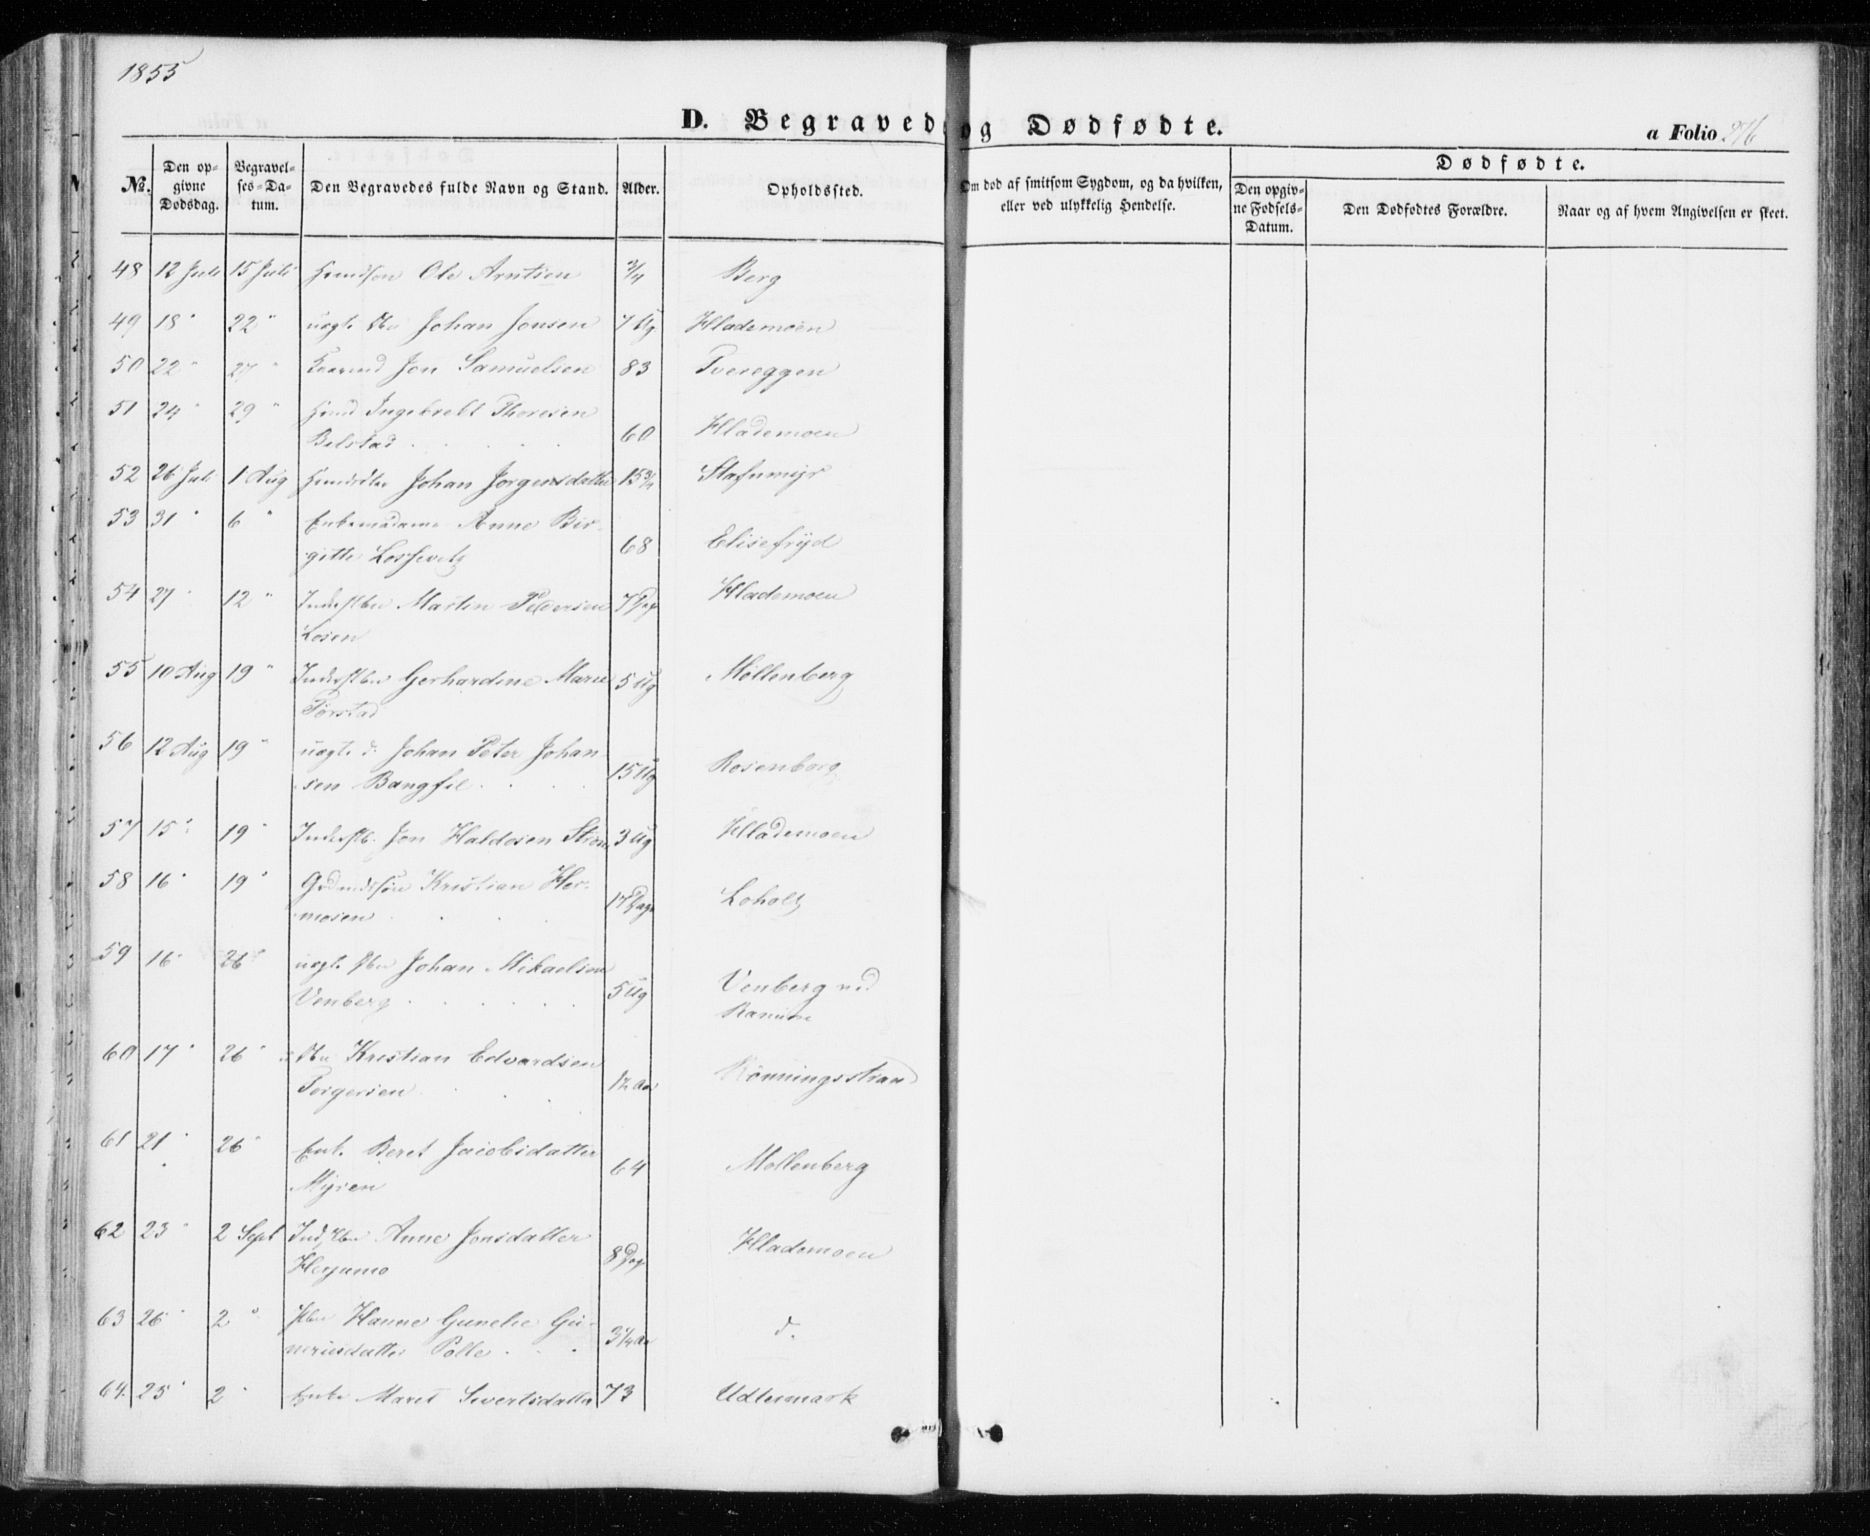 1855
D. Begravede og Dødfødte.
a Folio 276
No.
Den opgivne Dødsdag.
Begravelses-Datum.
Den Begravedes fulde Navn og Stand.
Alder.
Opholdssted.
Om død af smitsom Sygdom, og da hvilken, eller ved ulykkelig Hendelse.
Dødfødte.
Den opgivne Fødsels-Datum.
Den Dødfødtes Forældre.
Naar og af hvem Angivelsen er skeet.
48 12 Juli 15 Juli Huusmdsøn Ole Arntsen 3/4 Berg
49 18 " 22 " uægte Johan Jonsen 7 Ug Hlademoen
50 22 " 27 " Jon Samuelsen 83 Tvereggen
51 24 " 29 " Ingebrekt Thoresen
Belstad . . . . 60 Hlademoen
52 26 Juli 1 Aug Johan Jørgensdatter 15 3/4 Stafnmyr
53 31 " 6 " Enkemadame Anne Bir-
gitte 68 Elisefryd
54 27 " 12 " Martin Pedersen 7 Dage Hlademoen
Losen
55 10 Aug 19 " Gerhardine Marie 5 Ug Møllenberg
Torstad
56 12 Aug 19 " uægte d. Johan Peter Johan-
sen Bangfil . . . 15 Ug Rosenborg
57 15 " 19 " Jon Haldosen Strøm 3 Ug Hlademoen
58 16 " 19 " Gaardmdssøn Kristian Her-
mosen . . . 17 Dage Loholt
59 16 " 26 " uægte Johan Mikaelsen
Venberg . . . . 5 Ug Venberg ved
Ranum
60 17 " 26 " Kristian Edvardsen
Torgersen . . . 12 Aar Rønningsstrand
61 21 " 26 " Enk. Beret Jacobsdatter
Myren 64 Møllenberg
62 23 " 2 Sept Anne Jonsdatter
8 Dage Hlademoen
63 26 " 2 " Hanne Gunelie Gu-
neriusdatter Pølle . . . 3 1/4 Aar d.
64. 25 " 2 " Enke Maret Sivertsdatter 73 Udlesmark